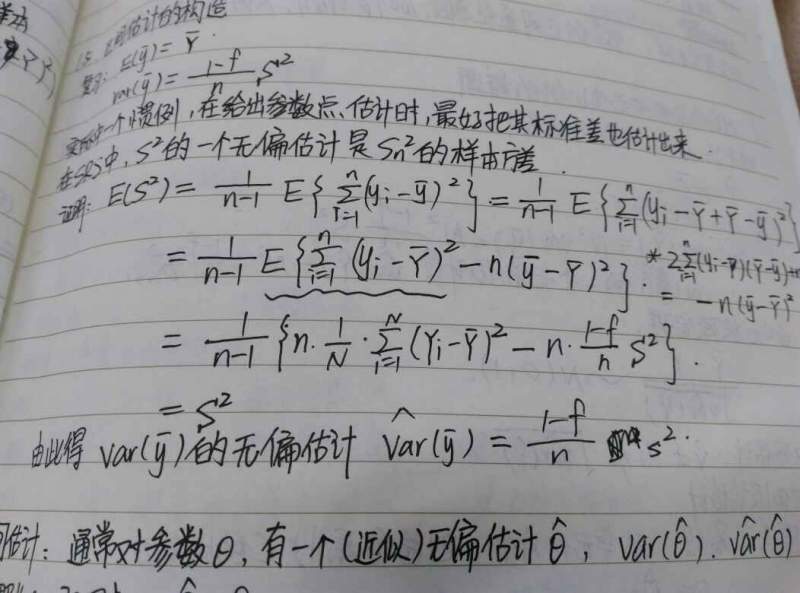 1.5 区间估计的构造
复习: E(ȳ) = Ȳ.
var(ȳ) = (1-f)/n S²
实际中一个惯例, 在给出参数点估计时, 最好把其标准差也估计出来.
在SRS中, S²的一个无偏估计是Sn²的样本方差.
证明: E(S²) = 1/(n-1) E{∑_{i=1}^{n}(yi-ȳ)²} = 1/(n-1) E{∑_{i=1}^{n}(yi-Ȳ+Ȳ-ȳ)²}
= 1/(n-1) E{∑_{i=1}^{n}(yi-Ȳ)² - n(ȳ-Ȳ)²}. * 2∑_{i=1}^{n}(yi-Ȳ)(Ȳ-ȳ)+
= -n(ȳ-Ȳ)²
= 1/(n-1) {n·1/N·∑_{i=1}^{N}(Yi-Ȳ)² - n·(1-f)/n S²}.
= S²
由此得 var(ȳ)的无偏估计 v̂ar(ȳ) = (1-f)/n s².
估计: 通常对参数θ, 有一个(近似)无偏估计θ̂, var(θ̂). v̂ar(θ̂)